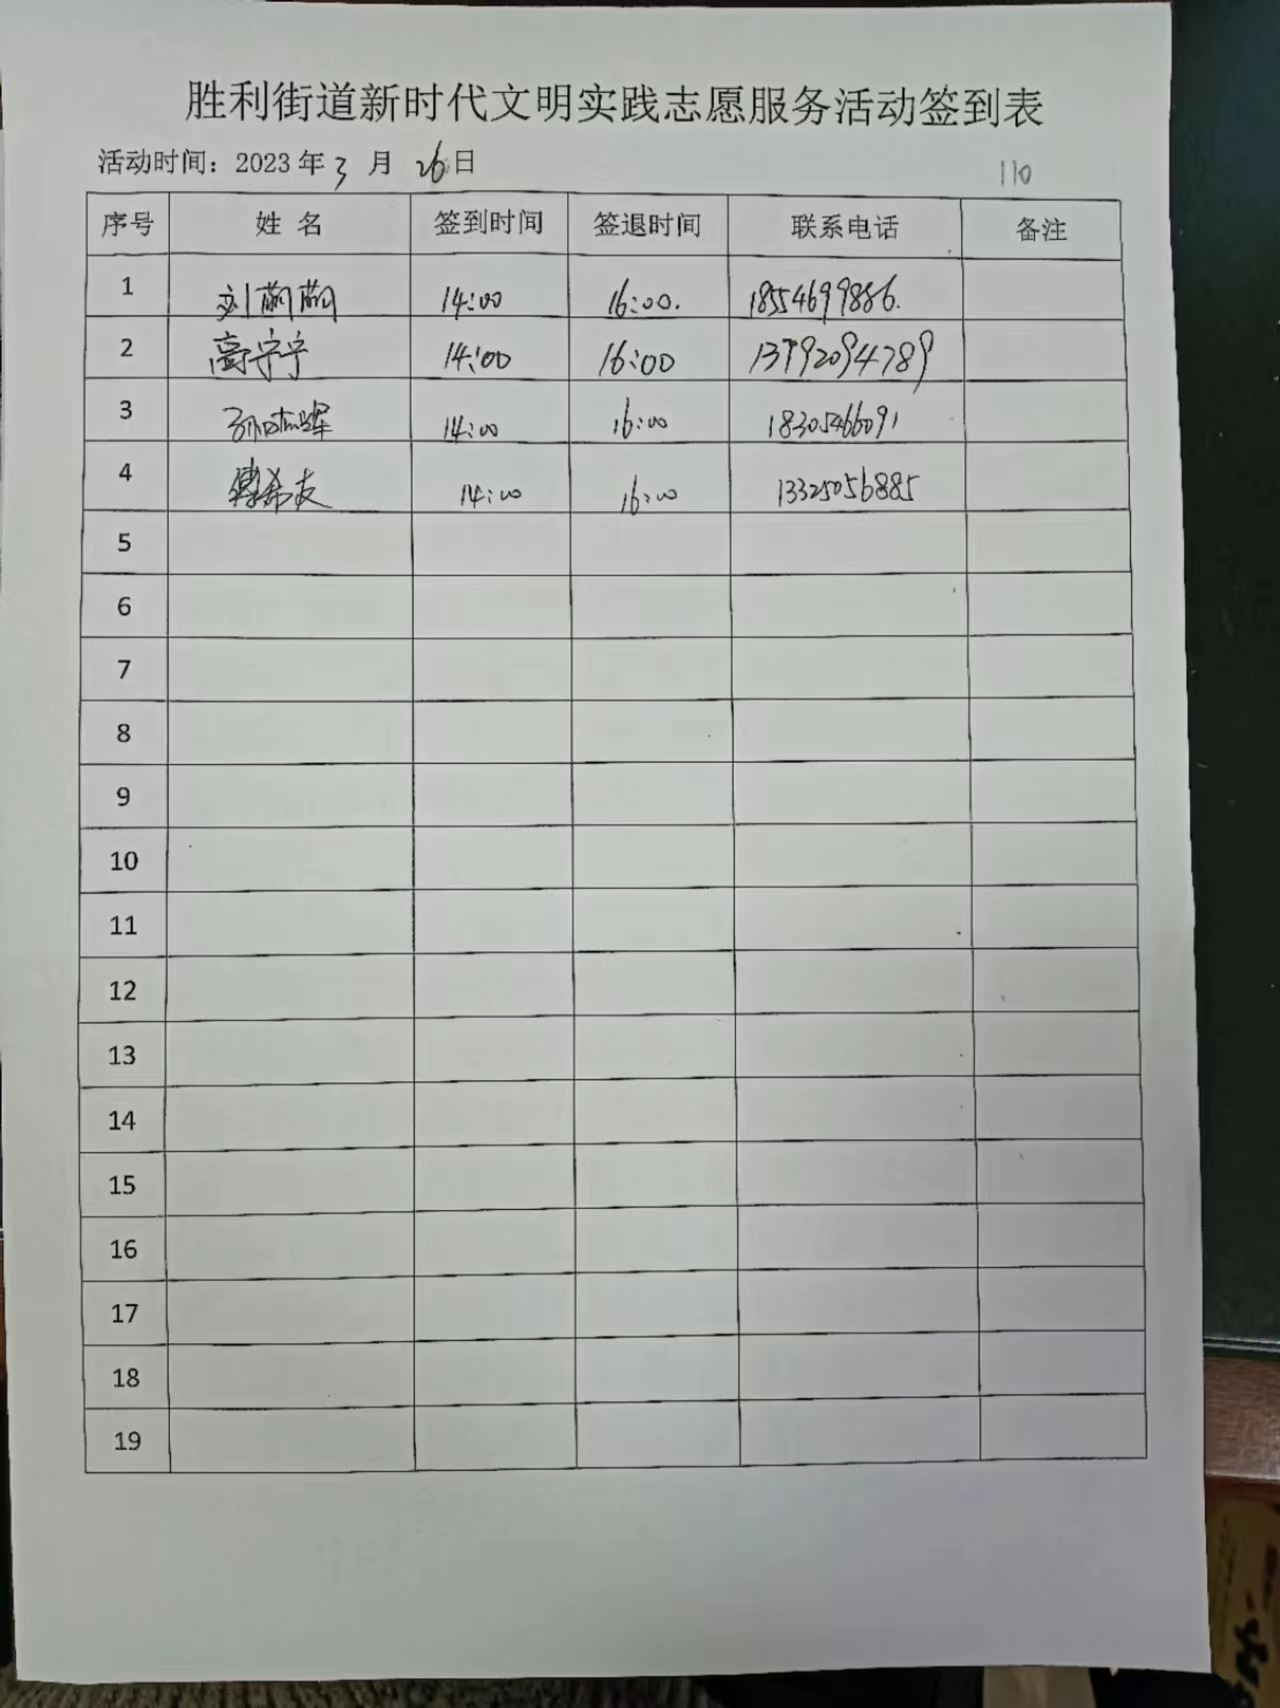 胜利街道新时代文明实践志愿服务活动签到表
活动时间：2023年3月26日
110
序号 姓名 签到时间 签退时间 联系电话 备注
1 刘萌萌 14:00 16:00. 18554699886.
2 高宁宁 14:00 16:00 13792094789
3 14:00 16:00 18305466091
4 傅希友 14:00 16:00 13325056885
5
6
7
8
9
10
11
12
13
14
15
16
17
18
19